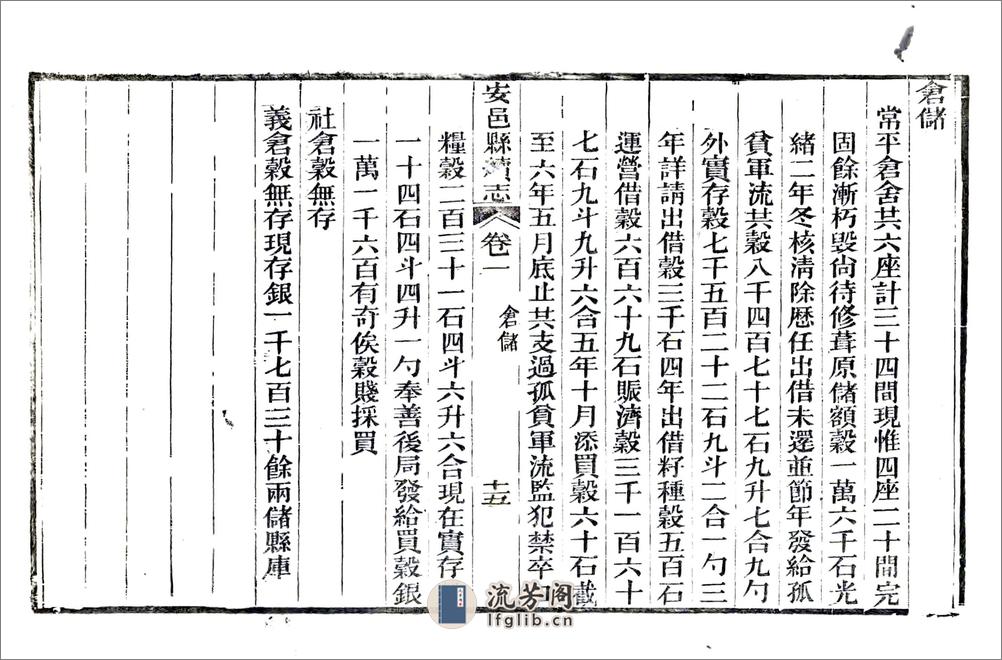 倉儲
常平倉舍共六座計三十四間現惟四座二十間完
固餘漸朽毀尙待修葺原儲額穀一萬六千石光
緒二年冬核清除歷任出借未還並節年發給孤
貧軍流共穀八千四百七十七石九升七合九勺
外實存穀七千五百二十二石九斗二合一勺三
年詳請出借穀三千石四年出借籽種穀五百石
運營借穀六百六十九石賑濟穀三千一百六十
七石九斗九升六合五年十月添買穀六十石截
至六年五月底止共支過孤貧軍流監犯禁卒口
安邑縣續志 卷一 倉儲 十五
糧穀二百三十一石四斗六升六合現在實存
一十四石四斗四升一勺奉善後局發給買穀銀
一萬一千六百有奇俟穀賤採買
社倉穀無存
義倉穀無存現存銀一千七百三十餘兩儲縣庫
流芳阁
lfglib.cn